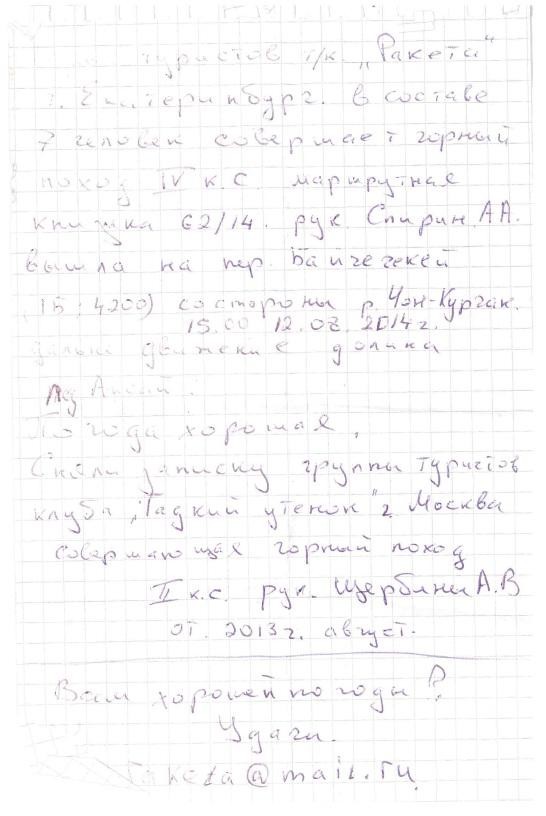 туристов т/к „Ракета"
г. Екатеринбург. в составе
7 человек совершает горный
поход IV к.с. маршрутная
книжка 62/14. рук. Спирин А.А.
вышла на пер. Байчечекей
(1Б; 4200) со стороны р. Чон-Курчак.
15.00 12.08.2014г.
дальн движение долина
Лд
Погода хорошая,
Сняли записку группы туристов
клуба „Гадкий утенок" г. Москва
совершающая горный поход
II к.с. рук. Щербина А.В
от. 2013г. август.
Вам хорошей погоды!
Удачи.
raketa@mail.ru